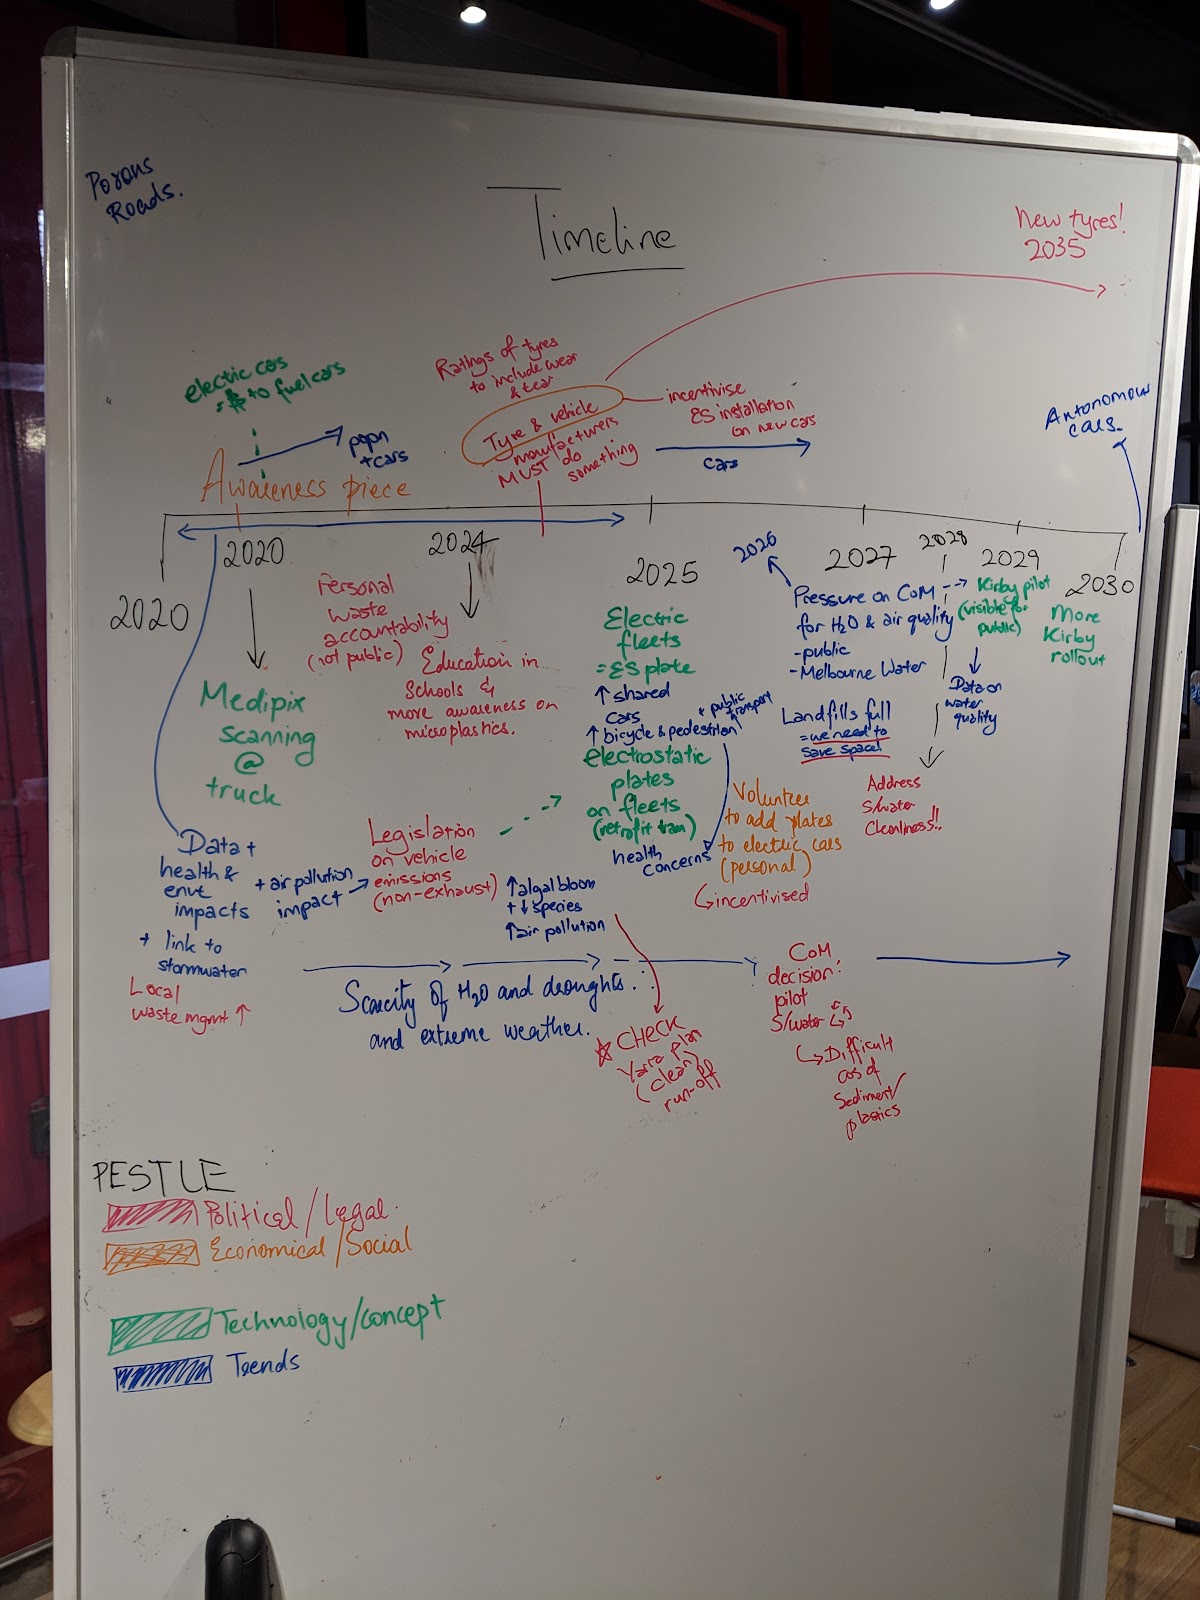 Porous
Roads.
Timeline
New tyres!
2035
electric cars
= $ to fuel cars
popn
+ cars
Awareness piece
Ratings of tyres
to include wear
& tear
Tyre & vehicle
manufacturers
MUST do
something
incentivise
ES installation
on new cars
cars
Autonomous
cars.
2020
2020
2024
2025
2026
2027
2028
2029
2030
Medipix
scanning
@
truck
Personal
waste
accountability
(not public)
Education in
Schools &
more awareness on
microplastics.
Electric
fleets
= ES plate
↑ shared
cars
↑ bicycle & pedestrian
+ public
transport
electrostatic
plates
on fleets
(retrofit tram)
health
concerns
Pressure on CoM
for H2O & air quality
- public
- Melbourne Water
Landfills full
= we need to
save space!
Kirby pilot
(visible for
public)
Data on
water
quality
More
Kirby
rollout
Address
S/water
Cleanliness!!
Volunteer
to add plates
to electric cars
(personal)
↳ incentivised
Data +
health &
envt
impacts
+ link to
stormwater
Local
waste mgmt ↑
+ air pollution
impact →
Legislation
on vehicle
emissions
(non-exhaust)
↑ algal bloom
+ ↓ species
↑ air pollution
Scarcity of H2O and droughts.
and extreme weather.
☆ CHECK
Yarra plan
(clean)
run-off
CoM
decision:
pilot
S/water
↳ Difficult
cos of
Sediment/
plastics
PESTLE
Political / Legal.
Economical / Social
Technology/concept
Trends